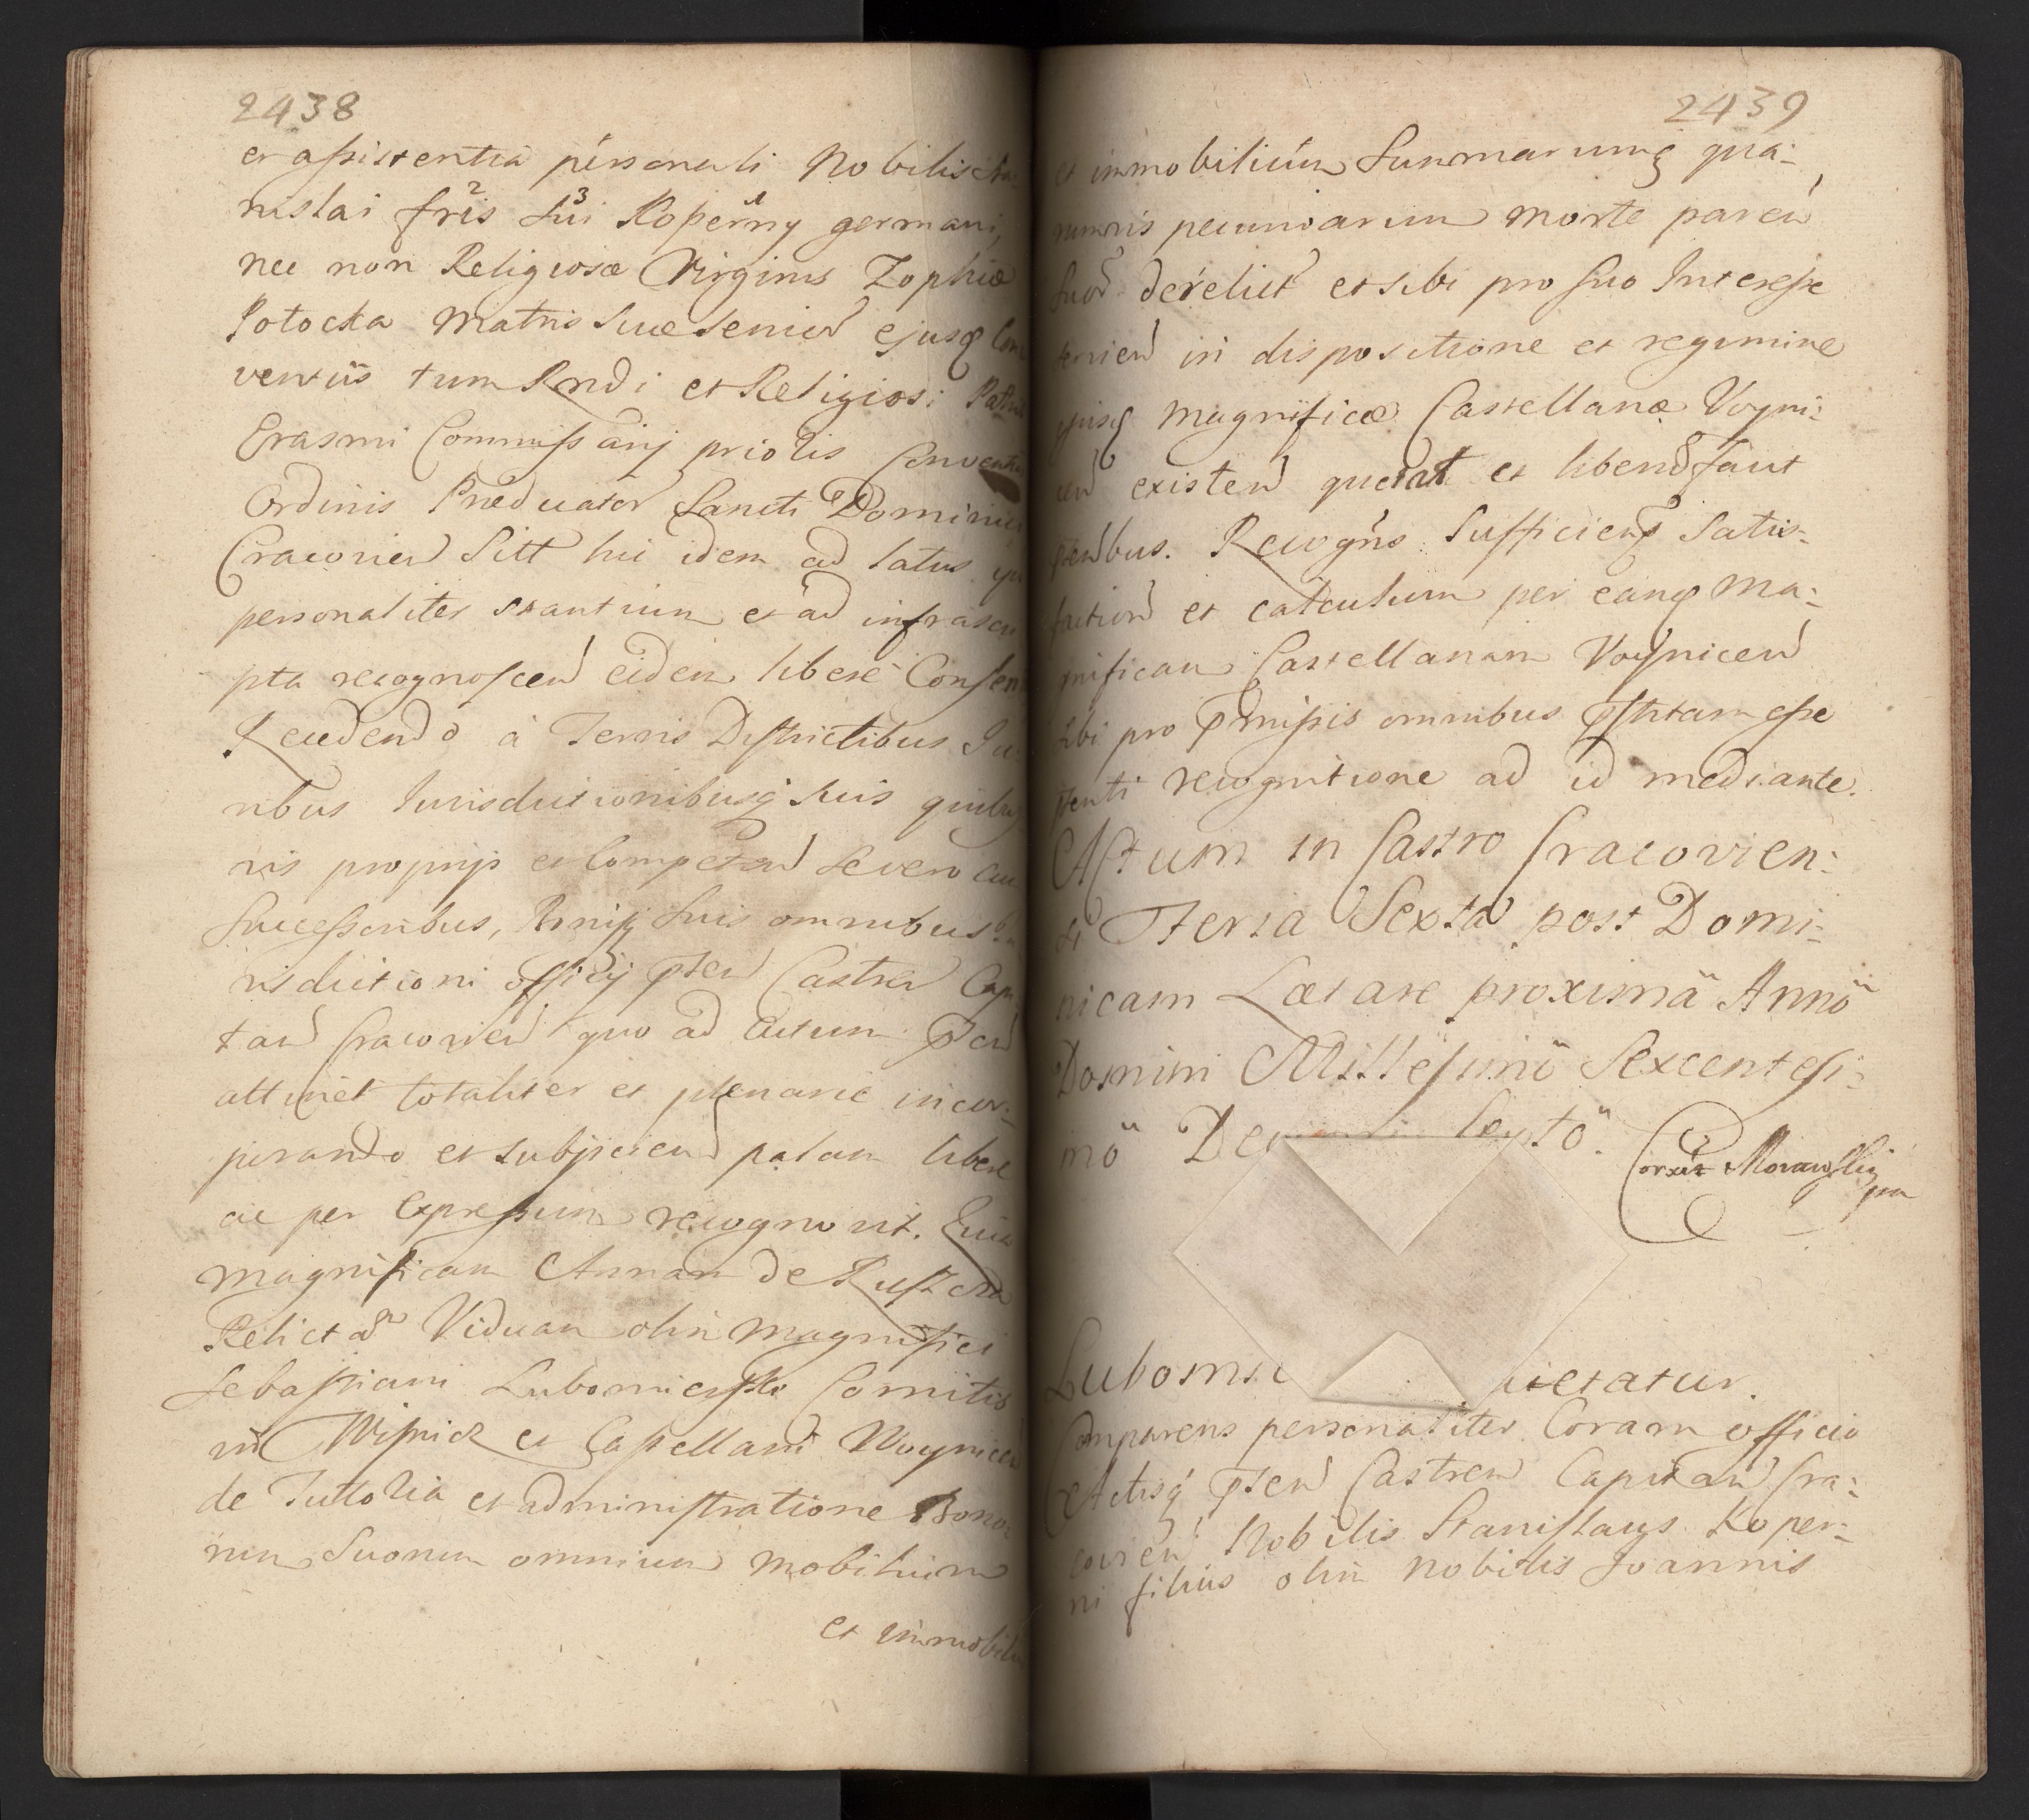 2438
et assistentia personali Nobilis Sta
nislai fris sui Koperny germani,
nec non Religiosæ Virginis Zophiæ
Potocka Matris suæ Senien ejusq Con
ventus tum Rndi et Religiosi Patris
Erasmi Commissarij priolis Conventus
Ordinis Prædicator Sancti Dominici
Cracovien Sitt hic idem ad latus
personaliter stantium et ad infrascri
pta recognoscen eidem liberè Consen
Recedendo à Terris Districtibus Ju
ribus Jurisdictionibusq suis quibus
vis proprijs et Competen se vero cum
Successoribus, Bonisq suis omnibus Ju
risdictioni officij pnten Castren Capi
tan Cracovien quo ad Actum pnten
attinet totaliter et plenarie incor-
porando et subijcien palam libere
ac per expressum recognovit. Quia
Magnificam Annam de Ruszcza
Relictam Viduam olim Magnifici
Sebastiani Lubomierski Comitis
in Wisnicz et Castellani Woynicen
de Tuttoria et administratione Bono
rum Suorum omnium mobilium
et immobiliu
2439
et immobilium Summarumq qua-
rumvis pecuniarum morte paren
suor derelict et sibi pro suo Interesse
servien in dispositione et regimine
ejusq Magnificæ Castellanæ Voyni-
cen existen quietat et liberam facit
pntibus. Recogns sufficiens Satis-
faction et calculum per eanq Ma-
gnificam Castellanam Voynicen
sibi pro pmissis omnibus pstitam esse
pnti recognitione ad id mediante.
Actum in Castro Cracovien-
si Feria Sexta post Domi-
nicam Lætare proximâ Annô
Domini Millesimô Sexcentesi-
mô De
Correxit Morawski
mp
Lubomi ietatur.
Comparens personaliter Coram officio
Actisq pnten Castren Capitan Cra-
covien Nobilis Stanislaus Koper-
ni filius olim Nobilis Joannis